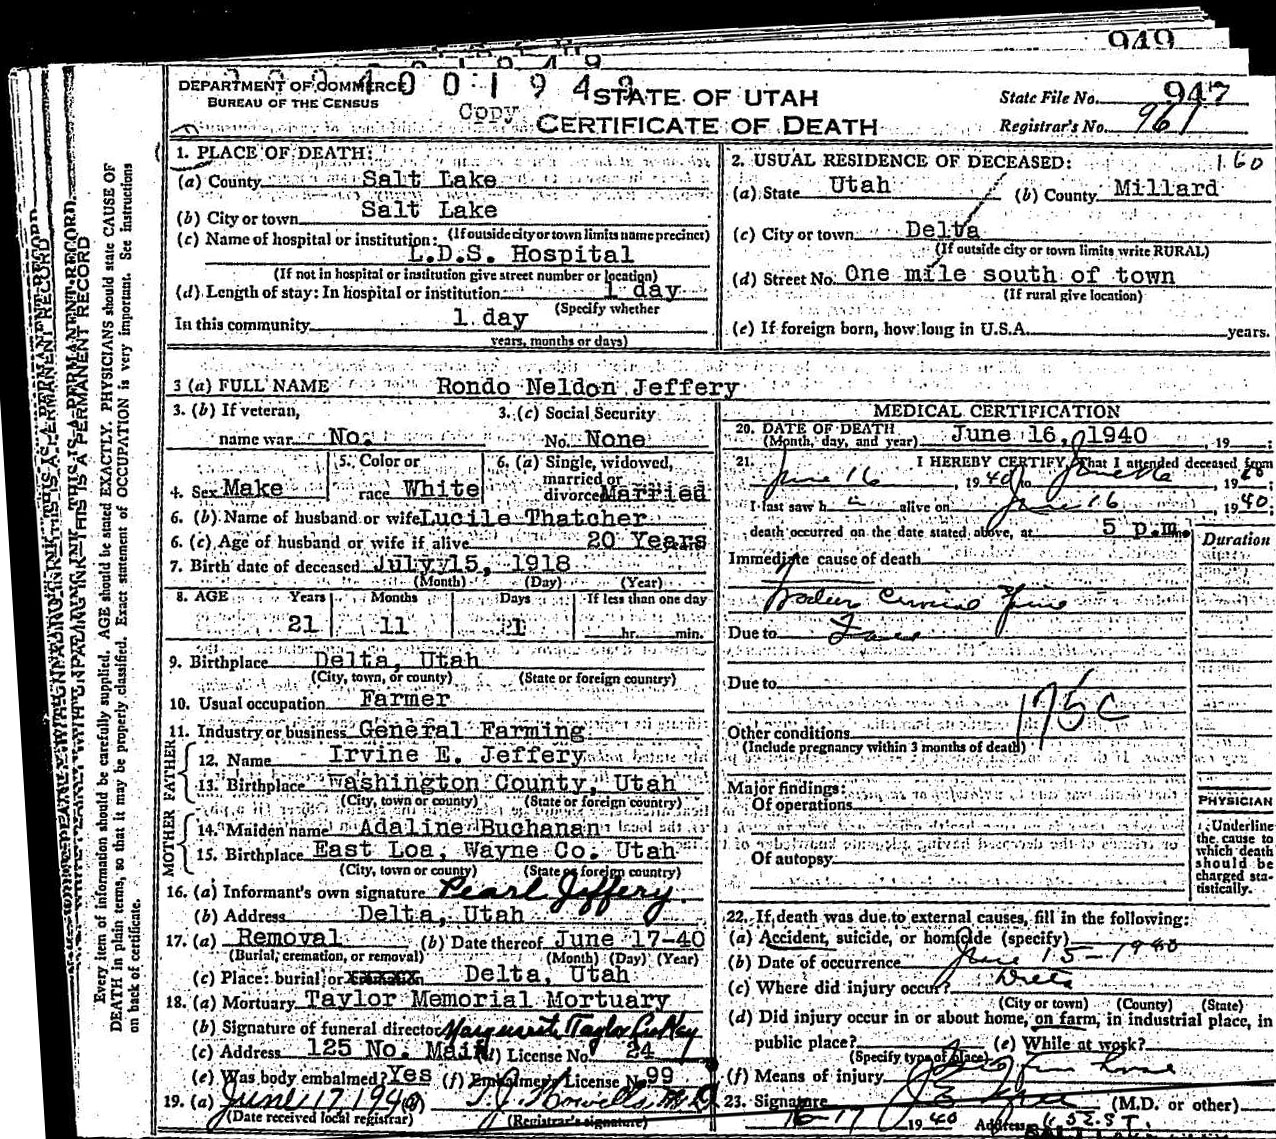 949
0 0 1 9 4 9
DEPARTMENT OF COMMERCE
BUREAU OF THE CENSUS
Copy
STATE OF UTAH
CERTIFICATE OF DEATH
State File No. 947
Registrar's No. 961
1. PLACE OF DEATH:
(a) County Salt Lake
(b) City or town Salt Lake
(If outside city or town limits name precinct)
(c) Name of hospital or institution:
L.D.S. Hospital
(If not in hospital or institution give street number or location)
(d) Length of stay: In hospital or institution 1 day
(Specify whether
In this community 1 day
years, months or days)
2. USUAL RESIDENCE OF DECEASED: 160
(a) State Utah (b) County Millard
(c) City or town Delta
(If outside city or town limits write RURAL)
(d) Street No. One mile south of town
(If rural give location)
(e) If foreign born, how long in U.S.A. years.
3 (a) FULL NAME Rondo Neldon Jeffery
3. (b) If veteran, 3. (c) Social Security
name war No. No. None
4. Sex Make 5. Color or race White 6. (a) Single, widowed, married or divorced Married
6. (b) Name of husband or wife Lucile Thatcher
6. (c) Age of husband or wife if alive 20 Years
7. Birth date of deceased July 15, 1918
(Month) (Day) (Year)
8. AGE Years Months Days If less than one day
21 11 1 hr. min.
9. Birthplace Delta, Utah
(City, town, or county) (State or foreign country)
10. Usual occupation Farmer
11. Industry or business General Farming
FATHER
12. Name Irvine E. Jeffery
13. Birthplace Washington County, Utah
(City, town or county) (State or foreign country)
MOTHER
14. Maiden name Adaline Buchanan
15. Birthplace East Loa, Wayne Co. Utah
(City, town or county) (State or foreign country)
16. (a) Informant's own signature Pearl Jeffery
(b) Address Delta, Utah
17. (a) Removal (b) Date thereof June 17-40
(Burial, cremation, or removal) (Month) (Day) (Year)
(c) Place: burial or cremation Delta, Utah
18. (a) Mortuary Taylor Memorial Mortuary
(b) Signature of funeral director Marguerite Taylor
(c) Address 125 No. Main (d) License No. 24
(e) Was body embalmed? Yes (f) Embalmer's License No. 99
19. (a) June 17 1940
(Date received local registrar) (Registrar's signature)
MEDICAL CERTIFICATION
20. DATE OF DEATH
(Month, day, and year) June 16, 1940, 19 ;
21. I HEREBY CERTIFY, That I attended deceased from
June 16, 1940 to June 16, 1940
I last saw h alive on June 16, 1940;
death occurred on the date stated above, at 5 p.m.
Duration
Immediate cause of death
Due to
Due to
175c
Other conditions
(Include pregnancy within 3 months of death)
Major findings:
Of operations
Of autopsy
PHYSICIAN
Underline
the cause to
which death
should be
charged sta-
tistically.
22. If death was due to external causes, fill in the following:
(a) Accident, suicide, or homicide (specify)
(b) Date of occurrence June 15-1940
(c) Where did injury occur? Delta
(City or town) (County) (State)
(d) Did injury occur in or about home, on farm, in industrial place, in
public place? (e) While at work?
(Specify type of place)
(f) Means of injury
23. Signature (M.D. or other)
1940 Address
Every item of information should be carefully supplied. AGE should be stated EXACTLY. PHYSICIANS should state CAUSE OF
DEATH in plain terms, so that it may be properly classified. Exact statement of OCCUPATION is very important. See instructions
on back of certificate.